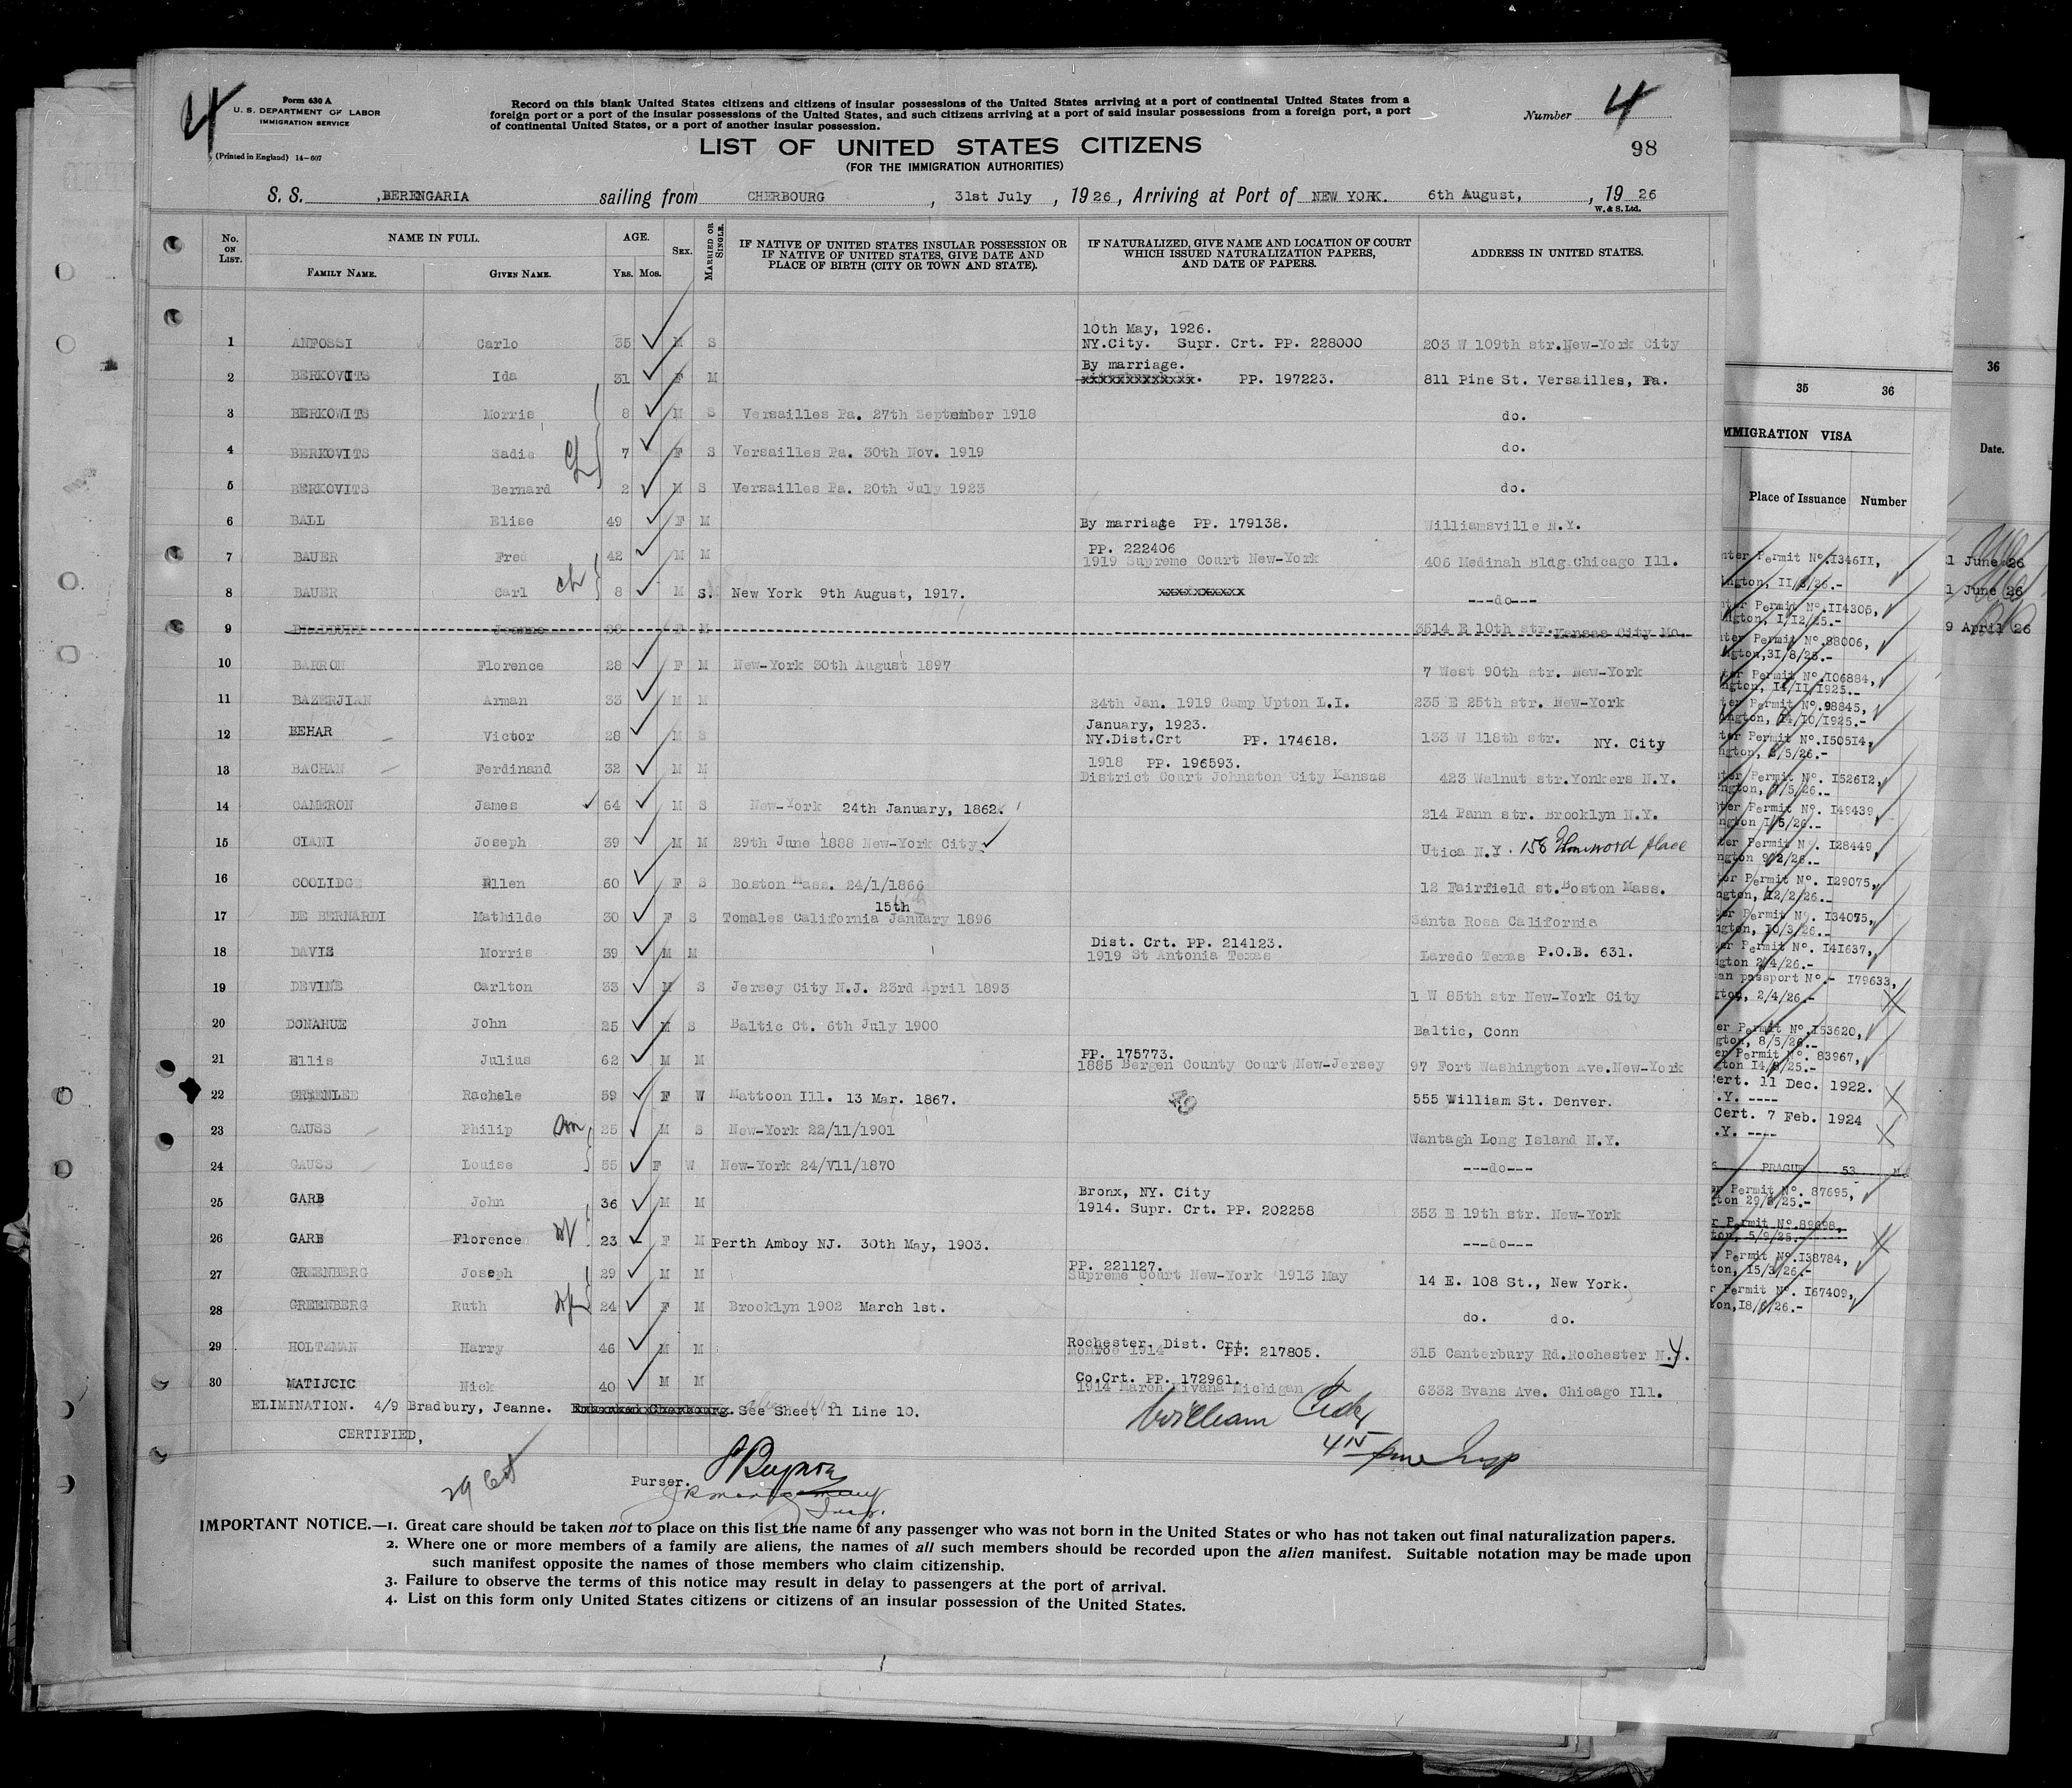 4
Form 630 A
U. S. DEPARTMENT OF LABOR
IMMIGRATION SERVICE
(Printed in England) 14-607
Record on this blank United States citizens and citizens of insular possessions of the United States arriving at a port of continental United States from a
foreign port or a port of the insular possessions of the United States, and such citizens arriving at a port of said insular possessions from a foreign port, a port
of continental United States, or a port of another insular possession.
Number 4
LIST OF UNITED STATES CITIZENS
(FOR THE IMMIGRATION AUTHORITIES)
98
S. S. BERENGARIA sailing from CHERBOURG, 31st July, 1926, Arriving at Port of NEW YORK. 6th August, , 1926
W. & S. Ltd.
No. ON LIST. NAME IN FULL. FAMILY NAME. GIVEN NAME. AGE. YRS. MOS. SEX. MARRIED OR SINGLE. IF NATIVE OF UNITED STATES INSULAR POSSESSION OR IF NATIVE OF UNITED STATES, GIVE DATE AND PLACE OF BIRTH (CITY OR TOWN AND STATE). IF NATURALIZED, GIVE NAME AND LOCATION OF COURT WHICH ISSUED NATURALIZATION PAPERS, AND DATE OF PAPERS. ADDRESS IN UNITED STATES.
10th May, 1926.
1 ANFOSSI Carlo 35 M S NY.City. Supr. Crt. PP. 228000 203 W 109th str.New-York City
By marriage.
2 BERKOVITS Ida 31 F M xxxxxxxxxxxxx. PP. 197223. 811 Pine St. Versailles, Pa.
3 BERKOWITS Morris 8 M S Versailles Pa. 27th September 1918 do.
4 BERKOVITS Sadie 7 F S Versailles Pa. 30th Nov. 1919 do.
5 BERKOVITS Bernard 2 M S Versailles Pa. 20th July 1923 do.
6 BALL Elise 49 F M By marriage PP. 179138. Williamsville N.Y.
PP. 222406
7 BAUER Fred 42 M M 1919 Supreme Court New-York 406 Medinah Bldg.Chicago Ill.
8 BAUER Carl ch 8 M S. New York 9th August, 1917. xxxxxxxxxx ---do---
9 BRADBURY Jeanne 28 F M 3514 E 10th str.Kansas City Mo.
10 BARRON Florence 28 F M New-York 30th August 1897 7 West 90th str. New-York
11 BAZERJIAN Arman 33 M M 24th Jan. 1919 Camp Upton L.I. 235 E 25th str. New-York
January, 1923.
12 BEHAR Victor 28 M S NY.Dist.Crt PP. 174618. 133 W 118th str. NY. City
1918 PP. 196593.
13 BACHAN Ferdinand 32 M M District Court Johnston City Kansas 423 Walnut str.Yonkers N.Y.
14 CAMERON James 64 M S New-York 24th January, 1862. 214 Pann str. Brooklyn N.Y.
15 CIANI Joseph 39 M M 29th June 1888 New-York City Utica N.Y. 158 place
16 COOLIDGE Ellen 60 F S Boston Mass. 24/1/1866 12 Fairfield st.Boston Mass.
15th
17 DE BERNARDI Mathilde 30 F S Tomales California January 1896 Santa Rosa California
Dist. Crt. PP. 214123.
18 DAVIS Morris 39 M M 1919 St Antonia Texas Laredo Texas P.O.B. 631.
19 DEVINE Carlton 33 M S Jersey City N.J. 23rd April 1893 1 W 85th str New-York City
20 DONAHUE John 25 M S Baltic Ct. 6th July 1900 Baltic, Conn
PP. 175773.
21 Ellis Julius 62 M M 1885 Bergen County Court New-Jersey 97 Fort Washington Ave.New-York
22 GREENLEE Rachele 59 F W Mattoon Ill. 13 Mar. 1867. 555 William St. Denver.
23 GAUSS Philip son 25 M S New-York 22/11/1901 Wantagh Long Island N.Y.
24 GAUSS Louise 55 F W New-York 24/V11/1870 ---do---
Bronx, NY. City
25 GARB John 36 M M 1914. Supr. Crt. PP. 202258 353 E 19th str. New-York
26 GARB Florence 23 F M Perth Amboy NJ. 30th May, 1903. ---do---
PP. 221127.
27 GREENBERG Joseph 29 M M Supreme Court New-York 1913 May 14 E. 108 St., New York.
28 GREENBERG Ruth 24 F M Brooklyn 1902 March 1st. do. do.
Rochester, Dist. Crt.
29 HOLTZMAN Harry 46 M M Monroe 1914 PP: 217805. 315 Canterbury Rd.Rochester N.Y.
Co.Crt. PP. 172961.
30 MATIJCIC Nick 40 M M 1914 March Kivana Michigan 6332 Evans Ave. Chicago Ill.
ELIMINATION. 4/9 Bradbury, Jeanne. Embarked Cherbourg. See Sheet 11 Line 10.
CERTIFIED,
William
Purser.
Insp.
IMPORTANT NOTICE.—1. Great care should be taken not to place on this list the name of any passenger who was not born in the United States or who has not taken out final naturalization papers.
2. Where one or more members of a family are aliens, the names of all such members should be recorded upon the alien manifest. Suitable notation may be made upon
such manifest opposite the names of those members who claim citizenship.
3. Failure to observe the terms of this notice may result in delay to passengers at the port of arrival.
4. List on this form only United States citizens or citizens of an insular possession of the United States.
35 36
MMIGRATION VISA
Place of Issuance Number
nter Permit No.I34611,
ington, II/3/26.-
ter Permit No.II4305,
ington, I/12/25.-
ter Permit No.88006,
ngton,31/8/25.-
ter Permit No.I06884,
ngton, 14/11/1925.-
ter Permit No.98845,
ngton, 14/10/1925.-
ter Permit No.I50514,
ngton, 5/26.-
ter Permit No. I52612,
ngton, /5/26.-
ter Permit No. I49439
ngton 1/5/26.-
ter Permit No. I28449
ngton 9/2/26.-
ter Permit No. I29075,
ngton, 12/2/26.-
er Permit No. I34075,
gton, 10/3/26.-
er Permit No. I41637,
gton 2/4/26.-
an passport No.- I79633,
gton, 2/4/26.-
er Permit No.I53620,
gton, 8/5/26.-
er Permit No. 83967,
gton 14/8/25.-
Cert. 11 Dec. 1922.
.Y. ----
Cert. 7 Feb. 1924
.Y. ----
PRAGUE 53
r Permit No. 87695,
ton 29/8/25.-
r Permit No.89698,
ton, 5/9/25.-
Permit No.I38784,
ton, 15/3/26.-
r Permit No. I67409,
ton,18/6/26.-
36
Date.
1 June 26
1 June 26
9 April 26